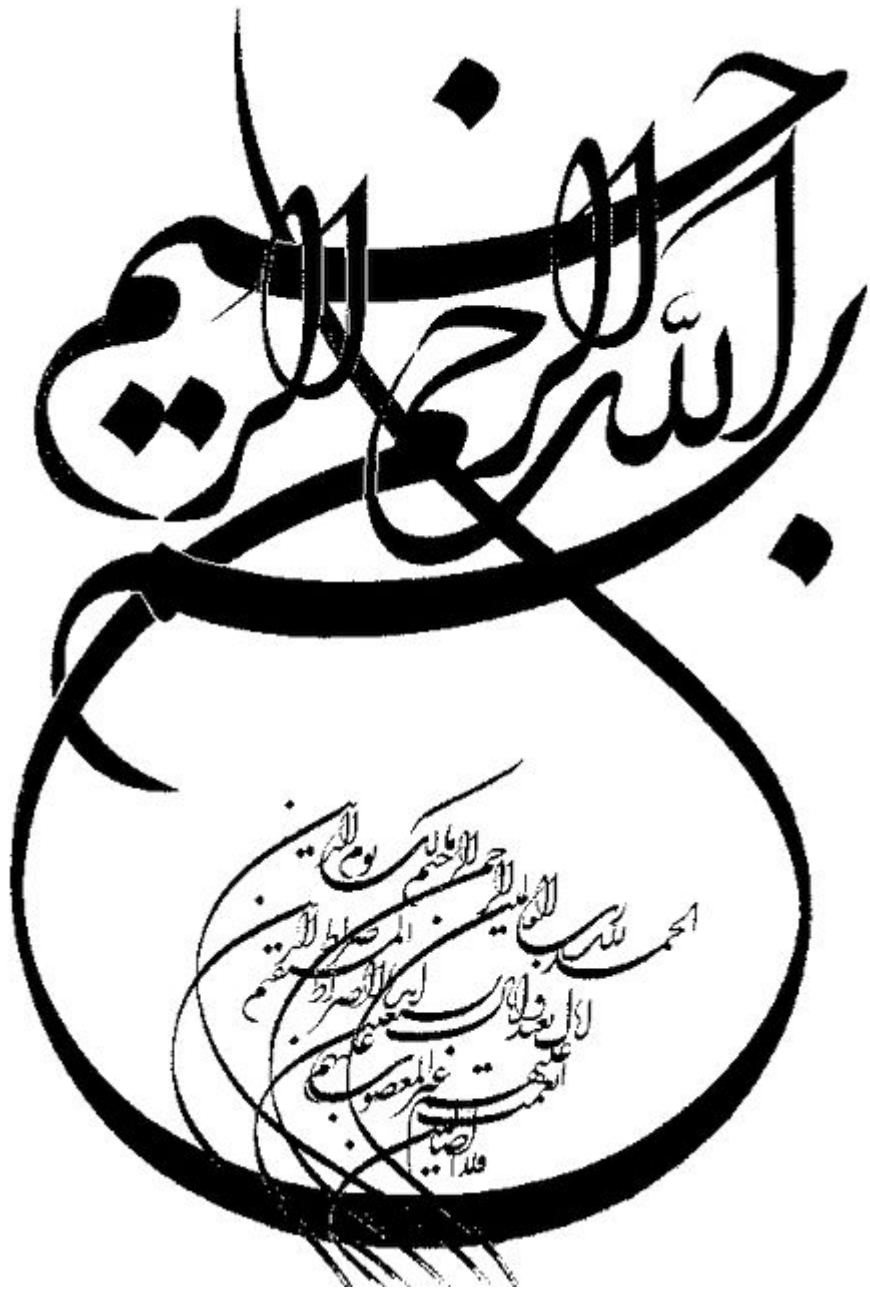 بسم الله الرحمن الرحيم
الحمد لله رب العالمين الرحمن
الرحيم مالك يوم الدين
اياك نعبد و اياك نستعين
اهدنا الصراط المستقيم
صراط الذين انعمت عليهم
غير المغضوب عليهم
ولا الضالين